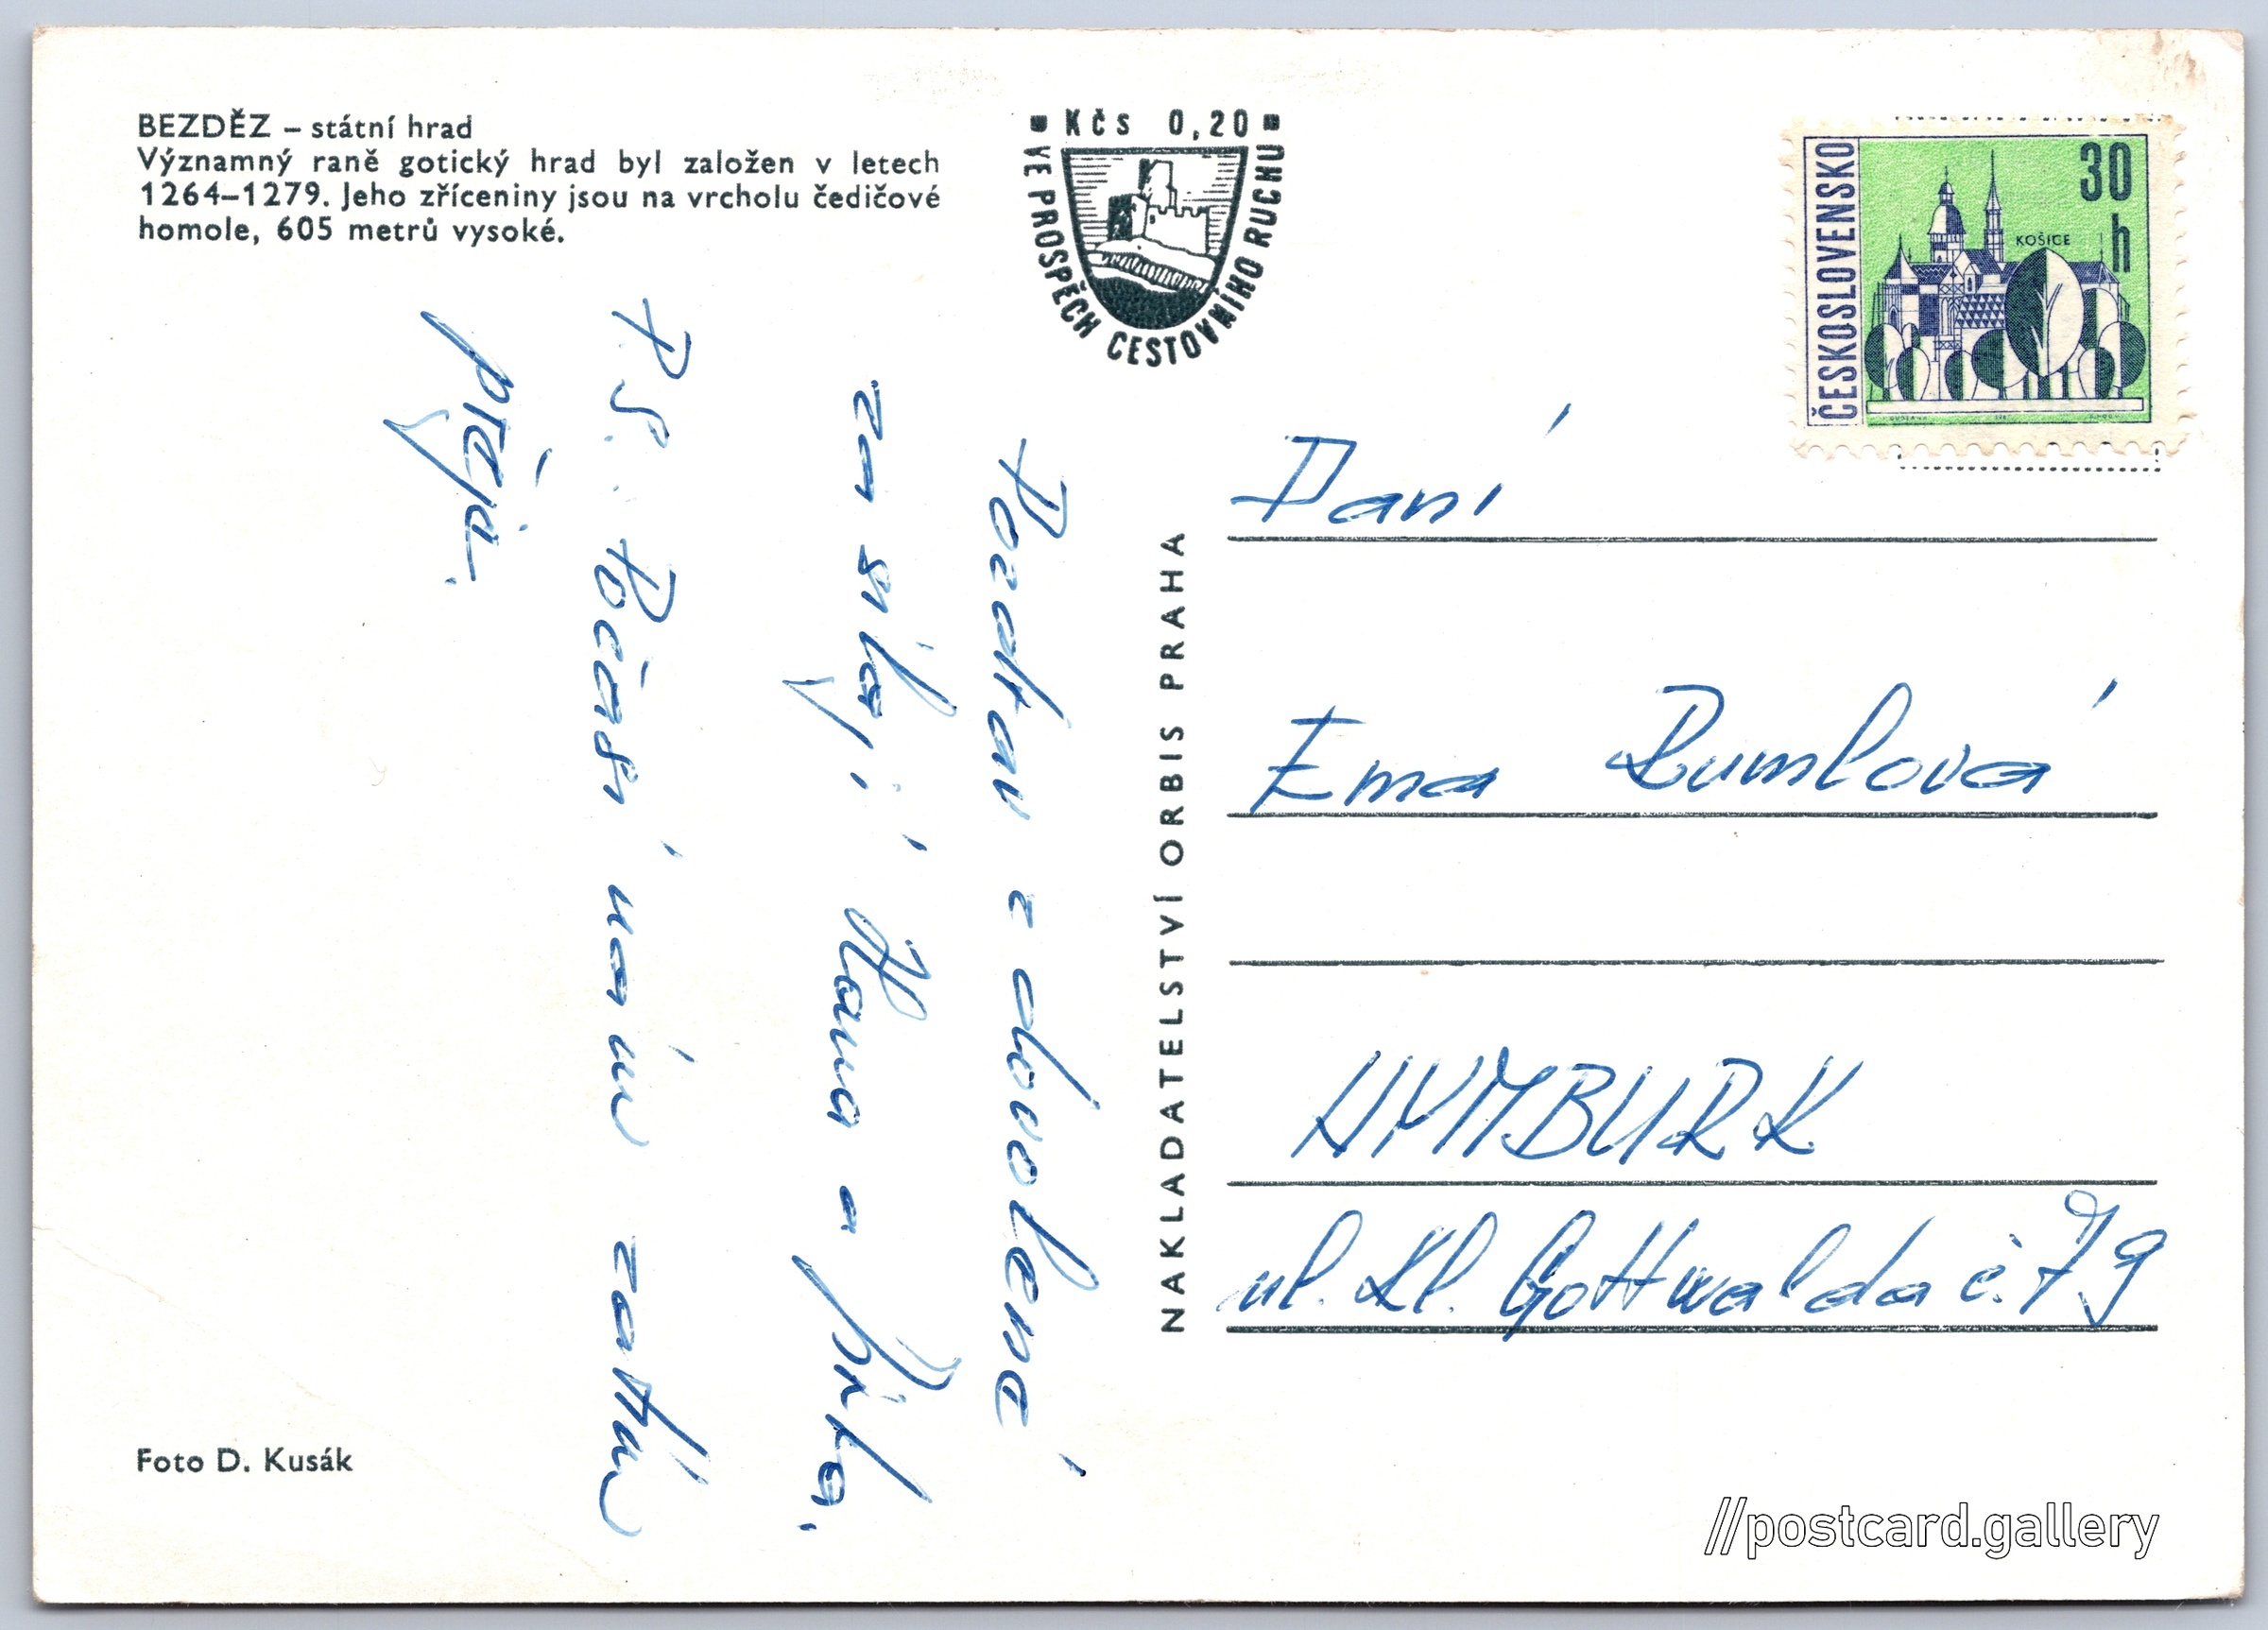 BEZDĚZ – státní hrad
Významný raně gotický hrad byl založen v letech
1264–1279. Jeho zříceniny jsou na vrcholu čedičové
homole, 605 metrů vysoké.
Kčs 0,20
VE PROSPĚCH CESTOVNÍHO RUCHU
ČESKOSLOVENSKO
30
h
KOŠICE
Pozdrav z dovolené
zasílají Hana a Jirka.
P.S. Počasí nám zatím
přeje.
NAKLADATELSTVÍ ORBIS PRAHA
Paní
Ema Rumlová
NYMBURK
ul. Kl. Gottwalda č. 79
Foto D. Kusák
//postcard.gallery